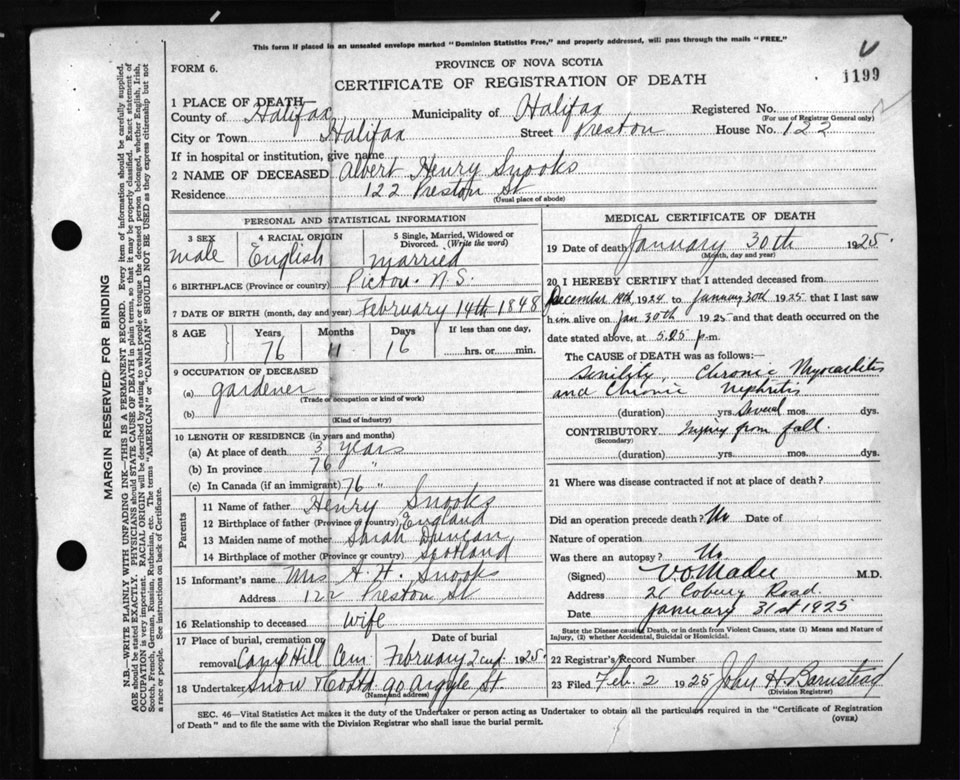 This form if placed in an unsealed envelope marked "Dominion Statistics Free," and properly addressed, will pass through the mails "FREE."
FORM 6.
PROVINCE OF NOVA SCOTIA
CERTIFICATE OF REGISTRATION OF DEATH
1199
1 PLACE OF DEATH
County of Halifax Municipality of Halifax Registered No.
(For use of Registrar General only)
City or Town Halifax Street Preston House No. 122
If in hospital or institution, give name
2 NAME OF DECEASED Albert Henry Snooks
Residence 122 Preston St
(Usual place of abode)
PERSONAL AND STATISTICAL INFORMATION
3 SEX 4 RACIAL ORIGIN 5 Single, Married, Widowed or Divorced. (Write the word)
male English married
6 BIRTHPLACE (Province or country) Pictou. N.S.
7 DATE OF BIRTH (month, day and year) February 14th 1848
8 AGE Years Months Days If less than one day,
76 11 16 hrs. or min.
9 OCCUPATION OF DECEASED
(a) gardener
(Trade or occupation or kind of work)
(b)
(Kind of industry)
10 LENGTH OF RESIDENCE (in years and months)
(a) At place of death 3 years
(b) In province 76 "
(c) In Canada (if an immigrant) 76 "
Parents
11 Name of father Henry Snooks
12 Birthplace of father (Province or country) England
13 Maiden name of mother Sarah Duncan
14 Birthplace of mother (Province or country) Scotland
15 Informant's name Mrs A. H. Snooks
Address 122 Preston St
16 Relationship to deceased wife
17 Place of burial, cremation or removal Date of burial
Camp Hill Cem February 2nd 1925
18 Undertaker Snow & Co Ltd 90 Argyle St
(Name and address)
MEDICAL CERTIFICATE OF DEATH
19 Date of death January 30th 1925.
(Month, day and year)
20 I HEREBY CERTIFY that I attended deceased from
December 19th, 1924 to January 30th 1925 that I last saw
him alive on Jan 30th 1925 and that death occurred on the
date stated above, at 5.25 p.m.
The CAUSE OF DEATH was as follows:
Senility, Chronic Myocarditis
and Chronic nephritis
(duration) yrs. Several mos. dys.
CONTRIBUTORY Injury from fall.
(Secondary)
(duration) yrs. mos. dys.
21 Where was disease contracted if not at place of death?
Did an operation precede death? No Date of
Nature of operation
Was there an autopsy? No.
(Signed) V.O. Mader M.D.
Address 21 Coburg Road.
Date January 31st 1925
State the Disease causing Death, or in death from Violent Causes, state (1) Means and Nature of
Injury, (2) whether Accidental, Suicidal or Homicidal.
22 Registrar's Record Number
23 Filed Feb. 2 1925 John H. Barnstead
(Division Registrar)
SEC. 46—Vital Statistics Act makes it the duty of the Undertaker or person acting as Undertaker to obtain all the particulars required in the "Certificate of Registration
of Death" and to file the same with the Division Registrar who shall issue the burial permit.
(OVER)
MARGIN RESERVED FOR BINDING
N.B.—WRITE PLAINLY WITH UNFADING INK—THIS IS A PERMANENT RECORD. Every item of information should be carefully supplied.
AGE should be stated EXACTLY. PHYSICIANS should STATE CAUSE OF DEATH in plain terms, so that it may be properly classified. Exact statement of
OCCUPATION is very important. RACIAL ORIGIN will be described by stating to what people or tongue the deceased person belonged, whether English, Irish,
Scotch, French, German, Russian, Ruthenian, etc. The terms "AMERICAN" or "CANADIAN" SHOULD NOT BE USED as they express citizenship but not
a race or people. See instructions on back of Certificate.